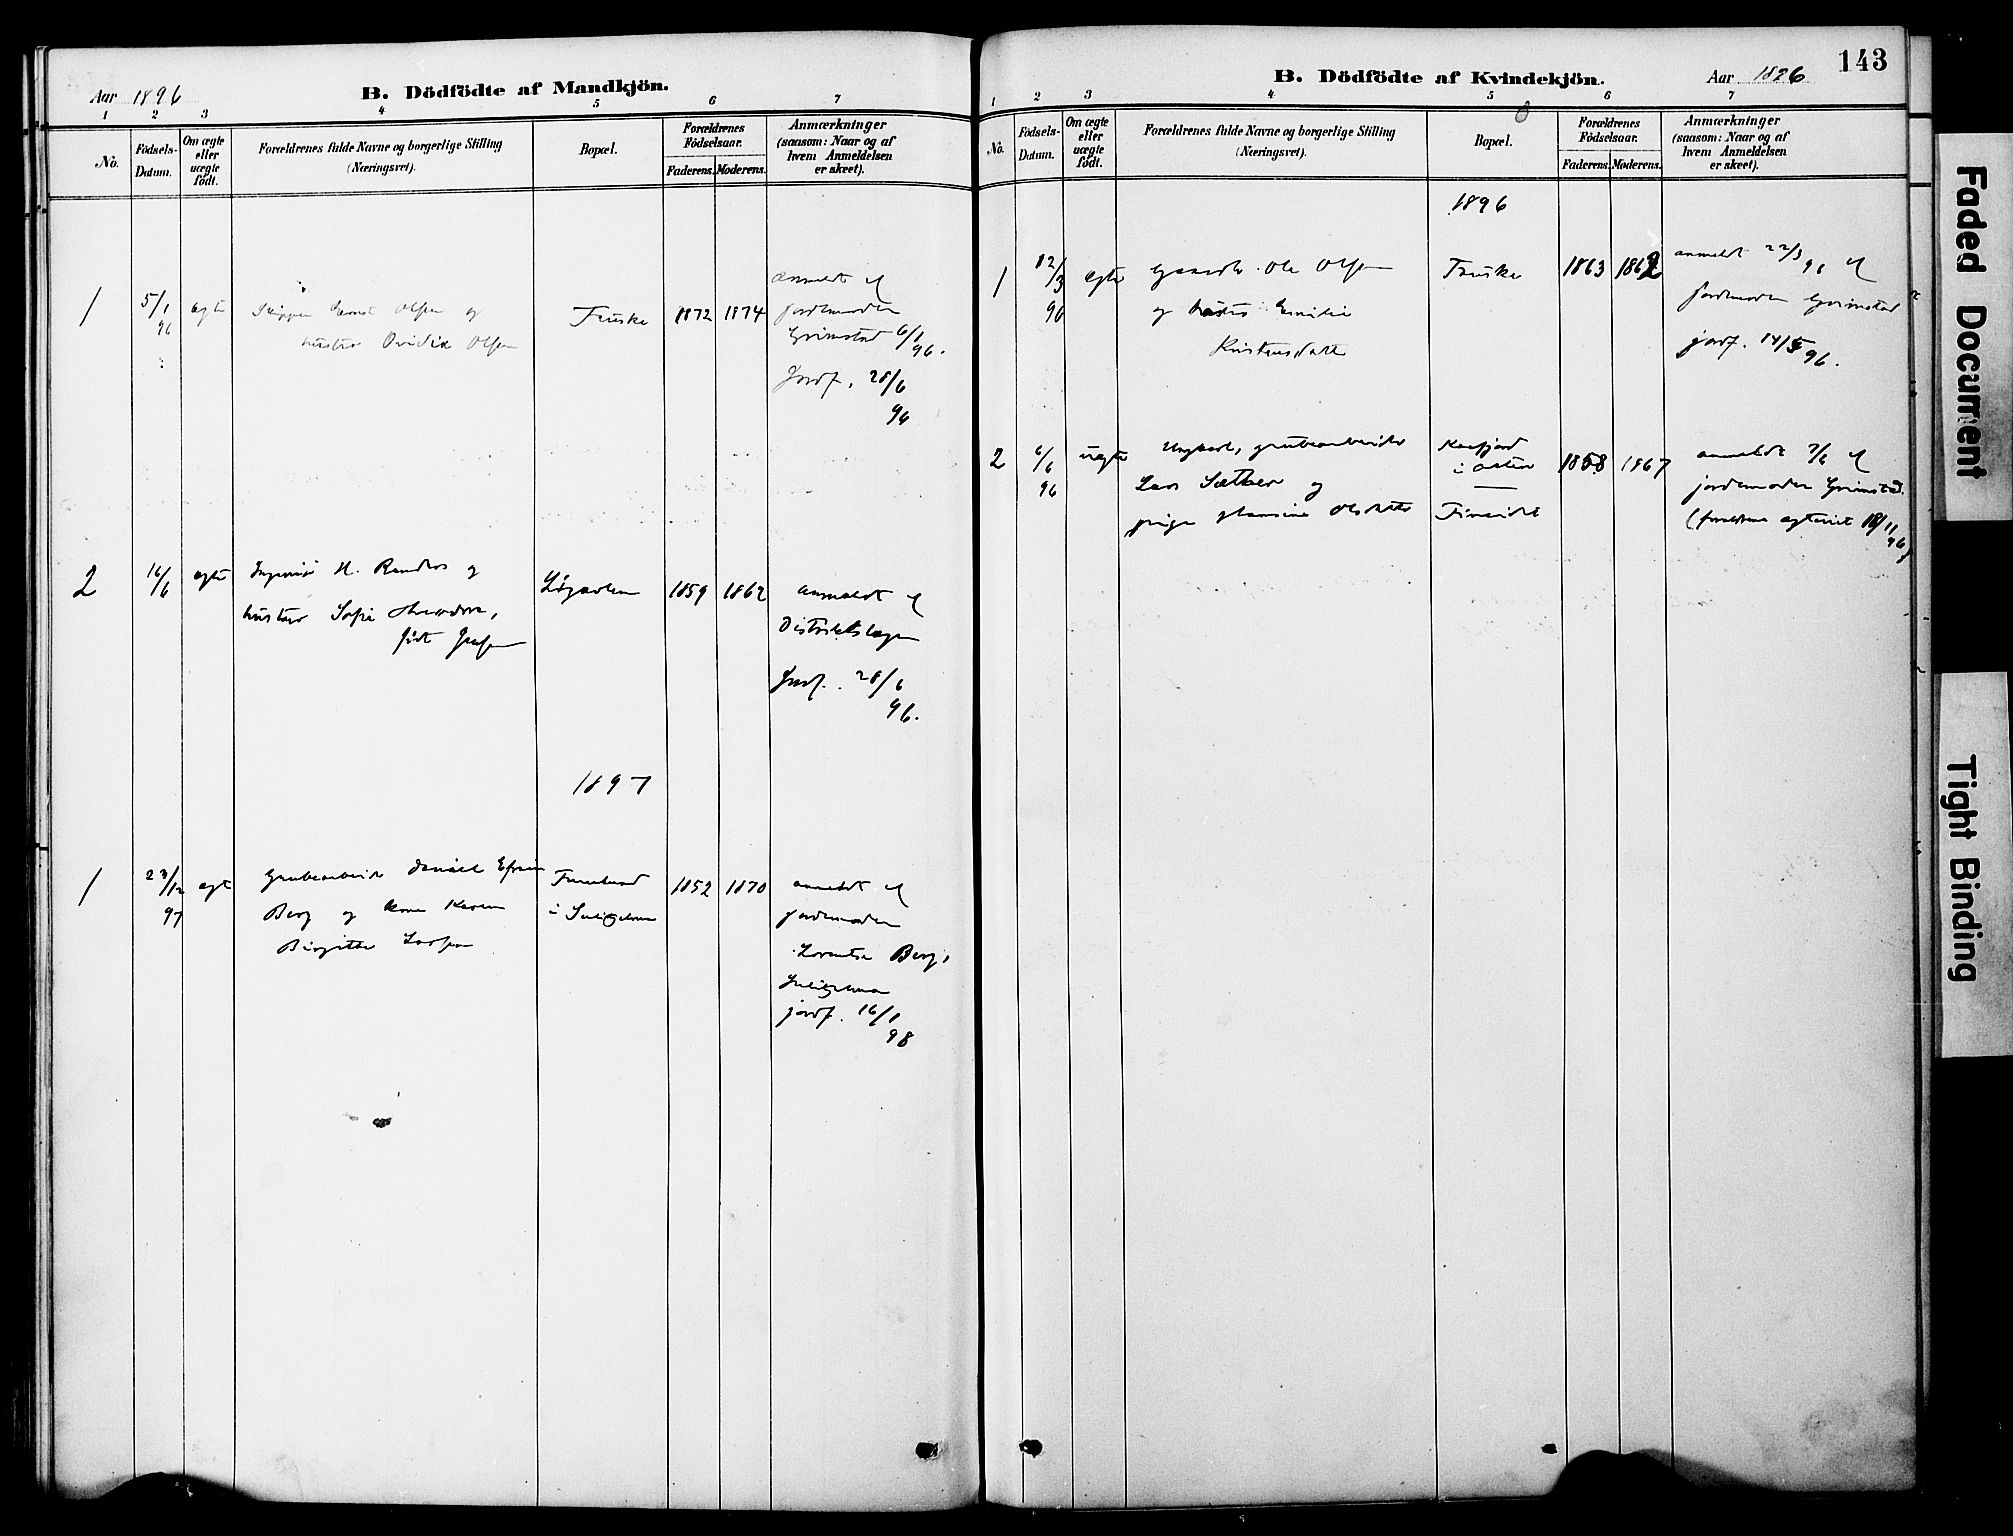 Aar 1896
B. Dödfödte af Mandkjön.
1 2 3 4 5 6 7
No.
Födsels-
Datum.
Om ægte
eller
uægte
födt.
Forældrenes fulde Navne og borgerlige Stilling
(Næringsvei).
Bopæl.
Forældrenes
Födselsaar.
Faderens. Moderens.
Anmærkninger
(saasom: Naar og af
hvem Anmeldelsen
er skeet).
1 5/1 96 ægte Skipper Olsen og
hustru Ovidia Olsen
Fauske 1872 1874
anmeldt af
jordemoder
Grimstad 6/1 96.
Jordf. 28/6
96
2 16/6 ægte Ingeniør H. Randers og
hustru Sofie
født
Løgavlen 1859 1862
anmeldt af
Distriktslægen
Jordf. 28/6
96.
1897
1 23/12 97 ægte Grubearbeider Daniel Efraim
Berg og Kone Karen
Birgitte Larsen
i Sulitjelma 1852 1870
anmeldt af
jordemoder
Lorentse Berg,
Sulitjelma
jordf. 16/1
98
143
B. Dödfödte af Kvindekjön.
Aar 1896
1 2 3 4 5 6 7
No.
Födsels-
Datum.
Om ægte
eller
uægte
födt.
Forældrenes fulde Navne og borgerlige Stilling
(Næringsvei).
Bopæl.
Forældrenes
Födselsaar.
Faderens. Moderens.
Anmærkninger
(saasom: Naar og af
hvem Anmeldelsen
er skeet).
1896
1 12/3 96 ægte Ole Olsen
og hustru Emilie
Kristensdatter
Fauske 1863 1862
anmeldt 22/3 96 af
jordemoder Grimstad
jordf. 14/5 96.
2 6/6 96 uægte Ungkarl, grubearbeider
Lars Sæther og
pige Hansine Olsdatter
Kaafjord
i Alten
Finneidet
1858 1867
anmeldt 7/6 af
jordemoder Grimstad.
(forældrene ægteviet 18/11
96)
Faded Document
Tight Binding